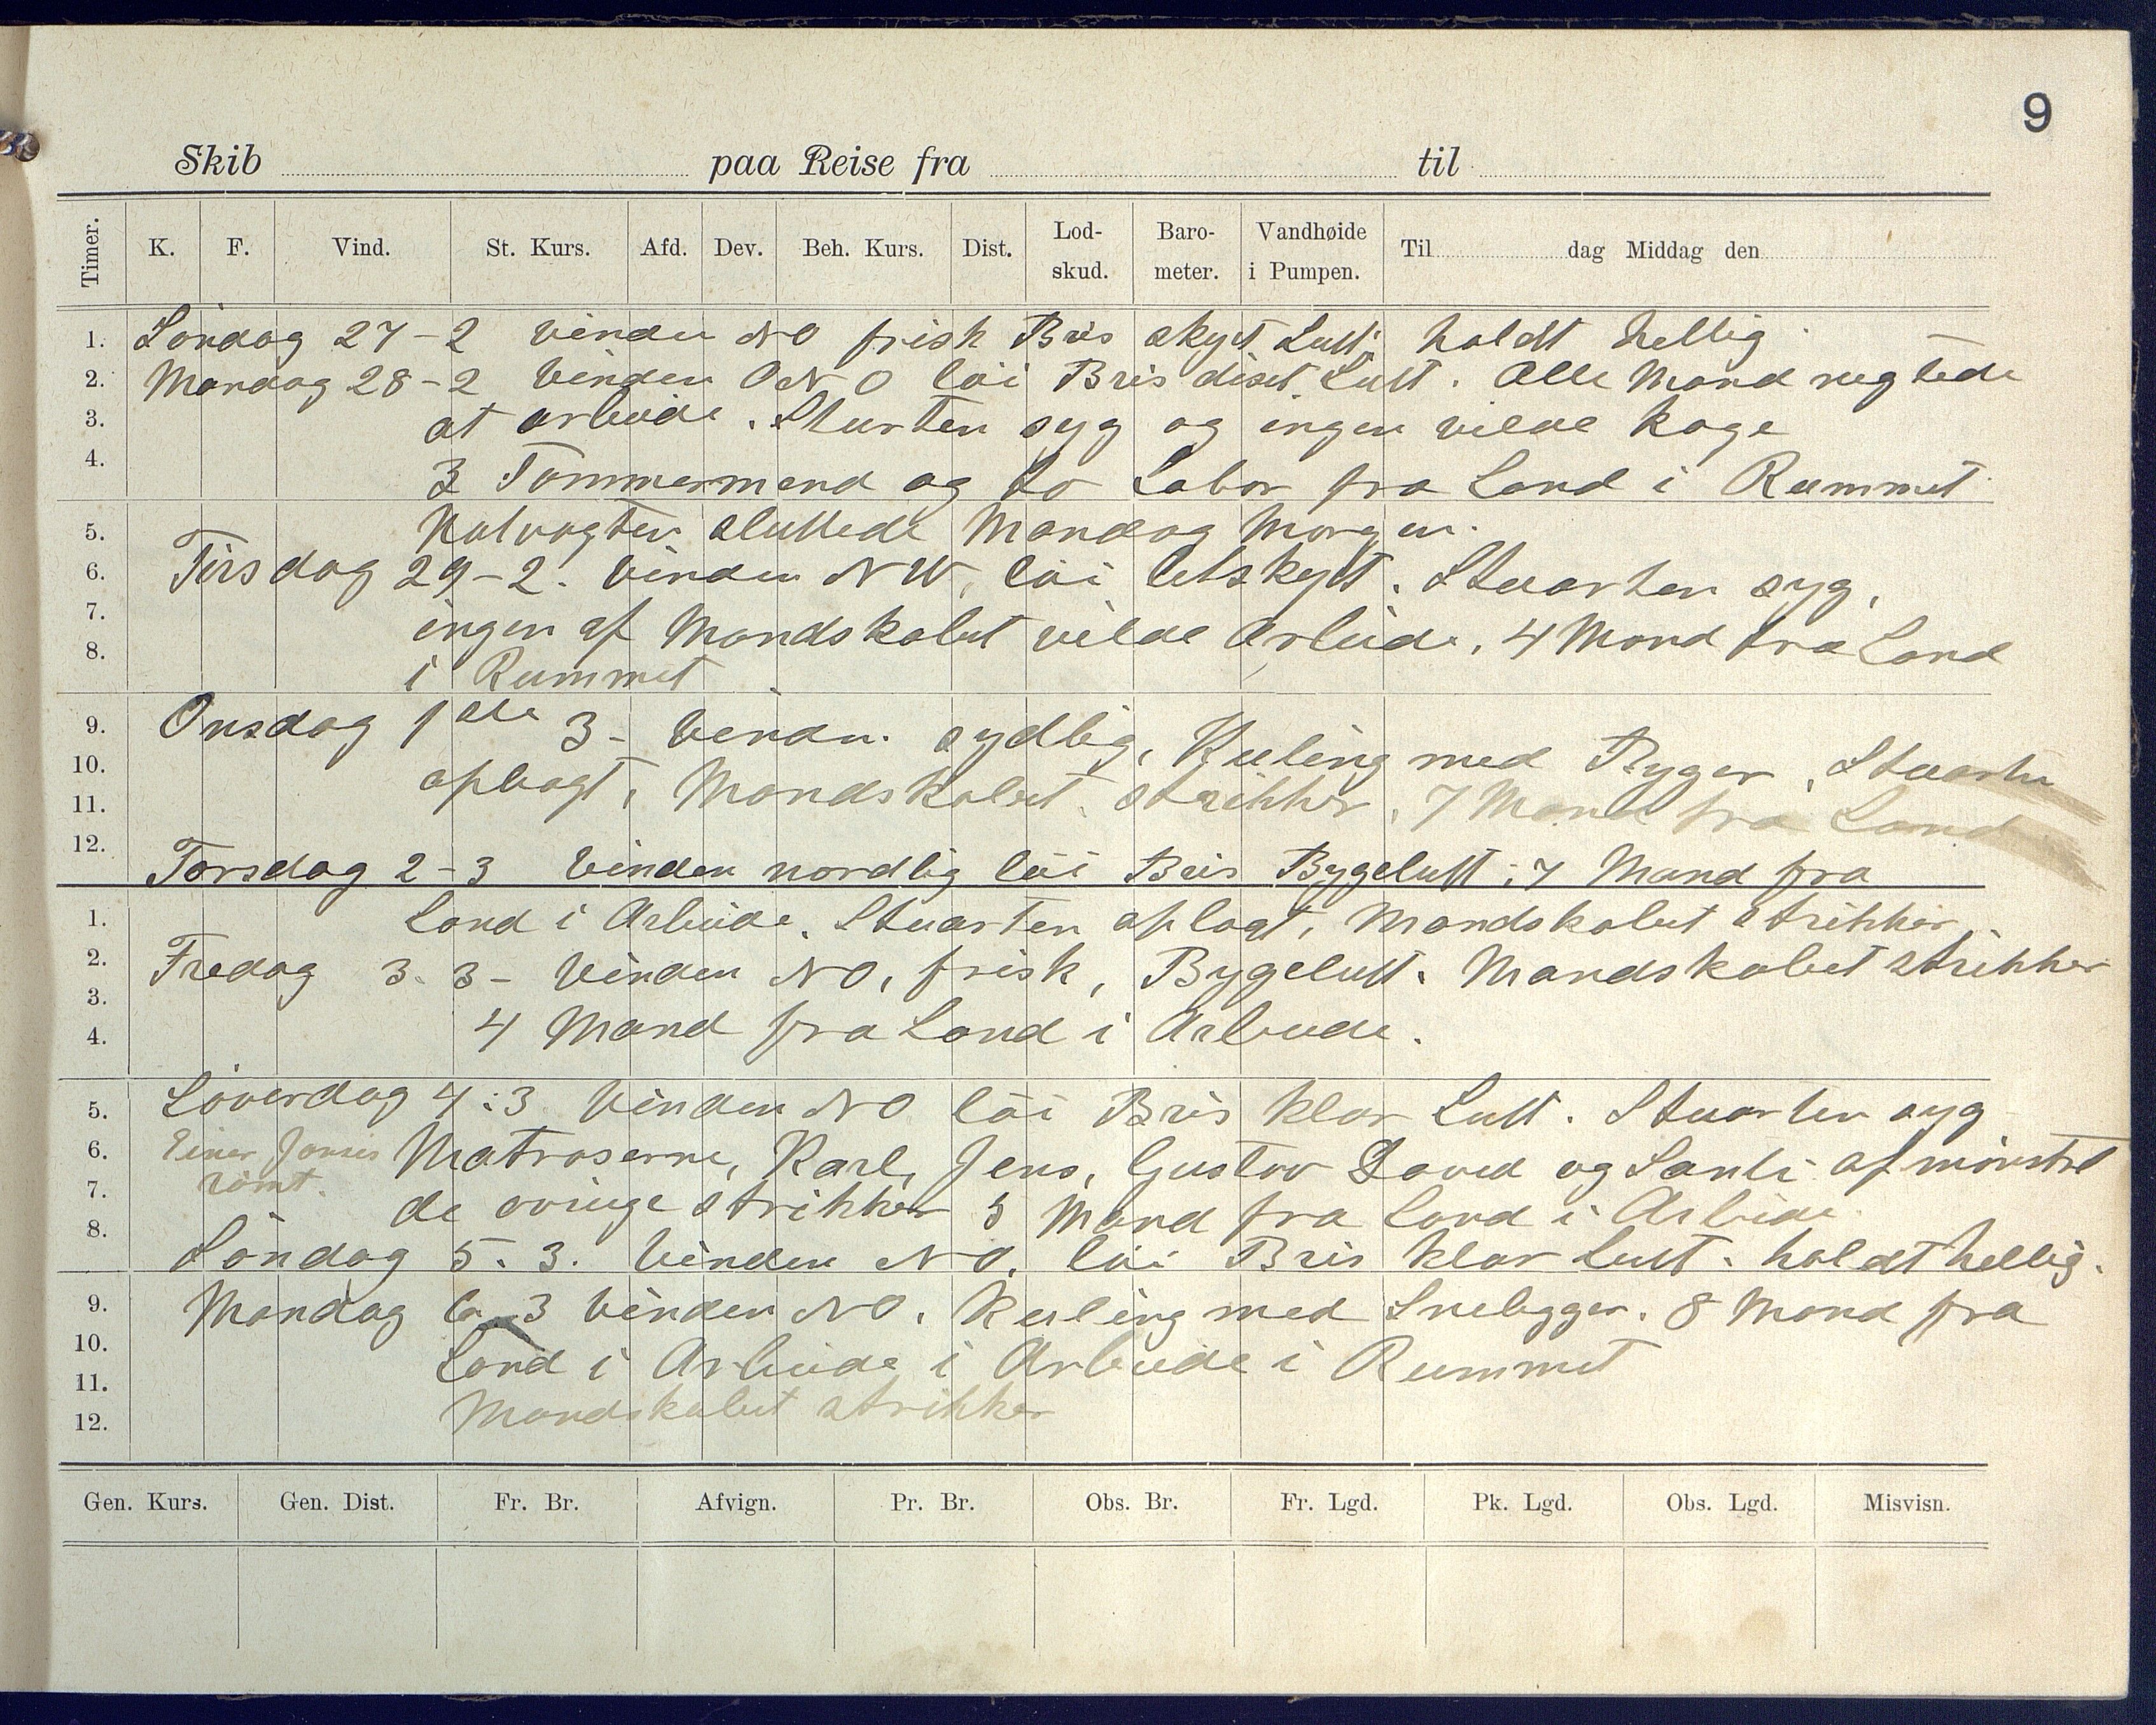 9
Skib paa Reise fra til
Timer. K. F. Vind. St. Kurs. Afd. Dev. Beh. Kurs. Dist. Lod-skud. Baro-meter. Vandhøide i Pumpen. Til dag Middag den
1. Söndag 27-2 Vinden NO frisk Bris skyet Luft. holdt hellig.
2. Mandag 28-2 Vinden ONO löi Bris diset Luft. Alle Mand negtede
3. at arbeide. Stuarten syg og ingen vilde koge
4. 3 Tømmermænd og to Labor fra Land i Rummet
5. Natvagten sluttede Mandag Morgen.
6. Tirsdag 29-2. Vinden NW, löi letskyet. Stuarten syg,
7. ingen af Mandskabet vilde Arbeide, 4 Mand fra Land
8. i Rummet
9. Onsdag 1ste 3- Vinden sydlig, Kuling med Byger, Stuarten
10. oplagt, Mandskabet strikker, 7 Mand fra Land
11.
12. Torsdag 2-3 Vinden nordlig löi Bris Bygeluft. 7 Mand fra
1. Land i Arbeide. Stuarten oplagt, Mandskabet strikker.
2. Fredag 3. 3- Vinden NO, frisk, Bygeluft. Mandskabet strikker
3. 4 Mand fra Land i Arbeide.
4.
5. Löverdag 4:3 Vinden NO löi Bris klar Luft. Stuarten syg
6. Einer Jonsis Matroserne, Karl, Jens, Gustav David og Santi afmönstret
7. römt. de övrige strikker 5 Mand fra Land i Arbeide.
8. Söndag 5. 3. Vinden NO. löi Bris klar Luft. holdt hellig.
9. Mandag 6-3 Vinden NO. Kuling med Snebygger. 8 Mand fra
10. Land i Arbeide i Arbeide i Rummet
11. Mandskabet strikker
12.
Gen. Kurs. Gen. Dist. Fr. Br. Afvign. Pr. Br. Obs. Br. Fr. Lgd. Pk. Lgd. Obs. Lgd. Misvisn.